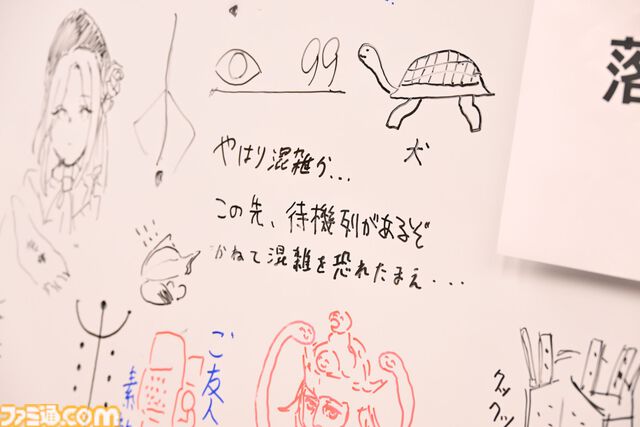 落
99
犬
やはり混雑か...
この先、待機列があるぞ
かねて混雑を恐れたまえ...
ご友人
素
クックッ
ファミ通.com